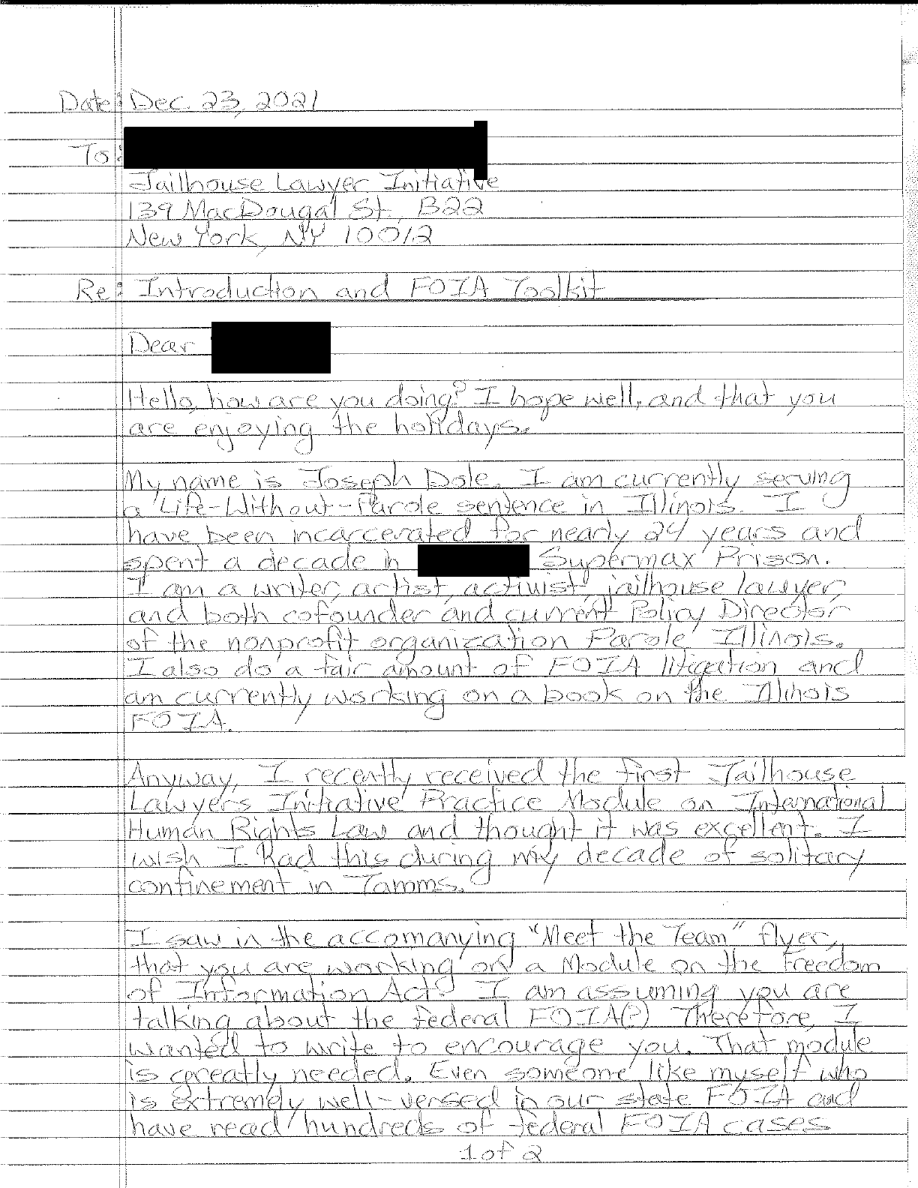 Date: Dec. 23, 2021
To:
Jailhouse Lawyer Initiative
139 MacDougal St., B22
New York, NY 10012
Re: Introduction and FOIA Toolkit
Dear
Hello, how are you doing? I hope well, and that you
are enjoying the holidays.
My name is Joseph Dole. I am currently serving
a Life-Without-Parole sentence in Illinois. I
have been incarcerated for nearly 24 years and
spent a decade in Supermax Prison.
I am a writer, artist, activist, jailhouse lawyer,
and both cofounder and current Policy Director
of the nonprofit organization Parole Illinois.
I also do a fair amount of FOIA litigation and
am currently working on a book on the Illinois
FOIA.
Anyway, I recently received the first Jailhouse
Lawyers Initiative Practice Module on International
Human Rights Law and thought it was excellent. I
wish I had this during my decade of solitary
confinement in Tamms.
I saw in the accomanying "Meet the Team" flyer,
that you are working on a Module on the Freedom
of Information Act. I am assuming you are
talking about the federal FOIA(?) Therefore, I
wanted to write to encourage you. That module
is greatly needed. Even someone like myself who
is extremely well-versed in our state FOIA and
have read hundreds of federal FOIA cases
1 of 2